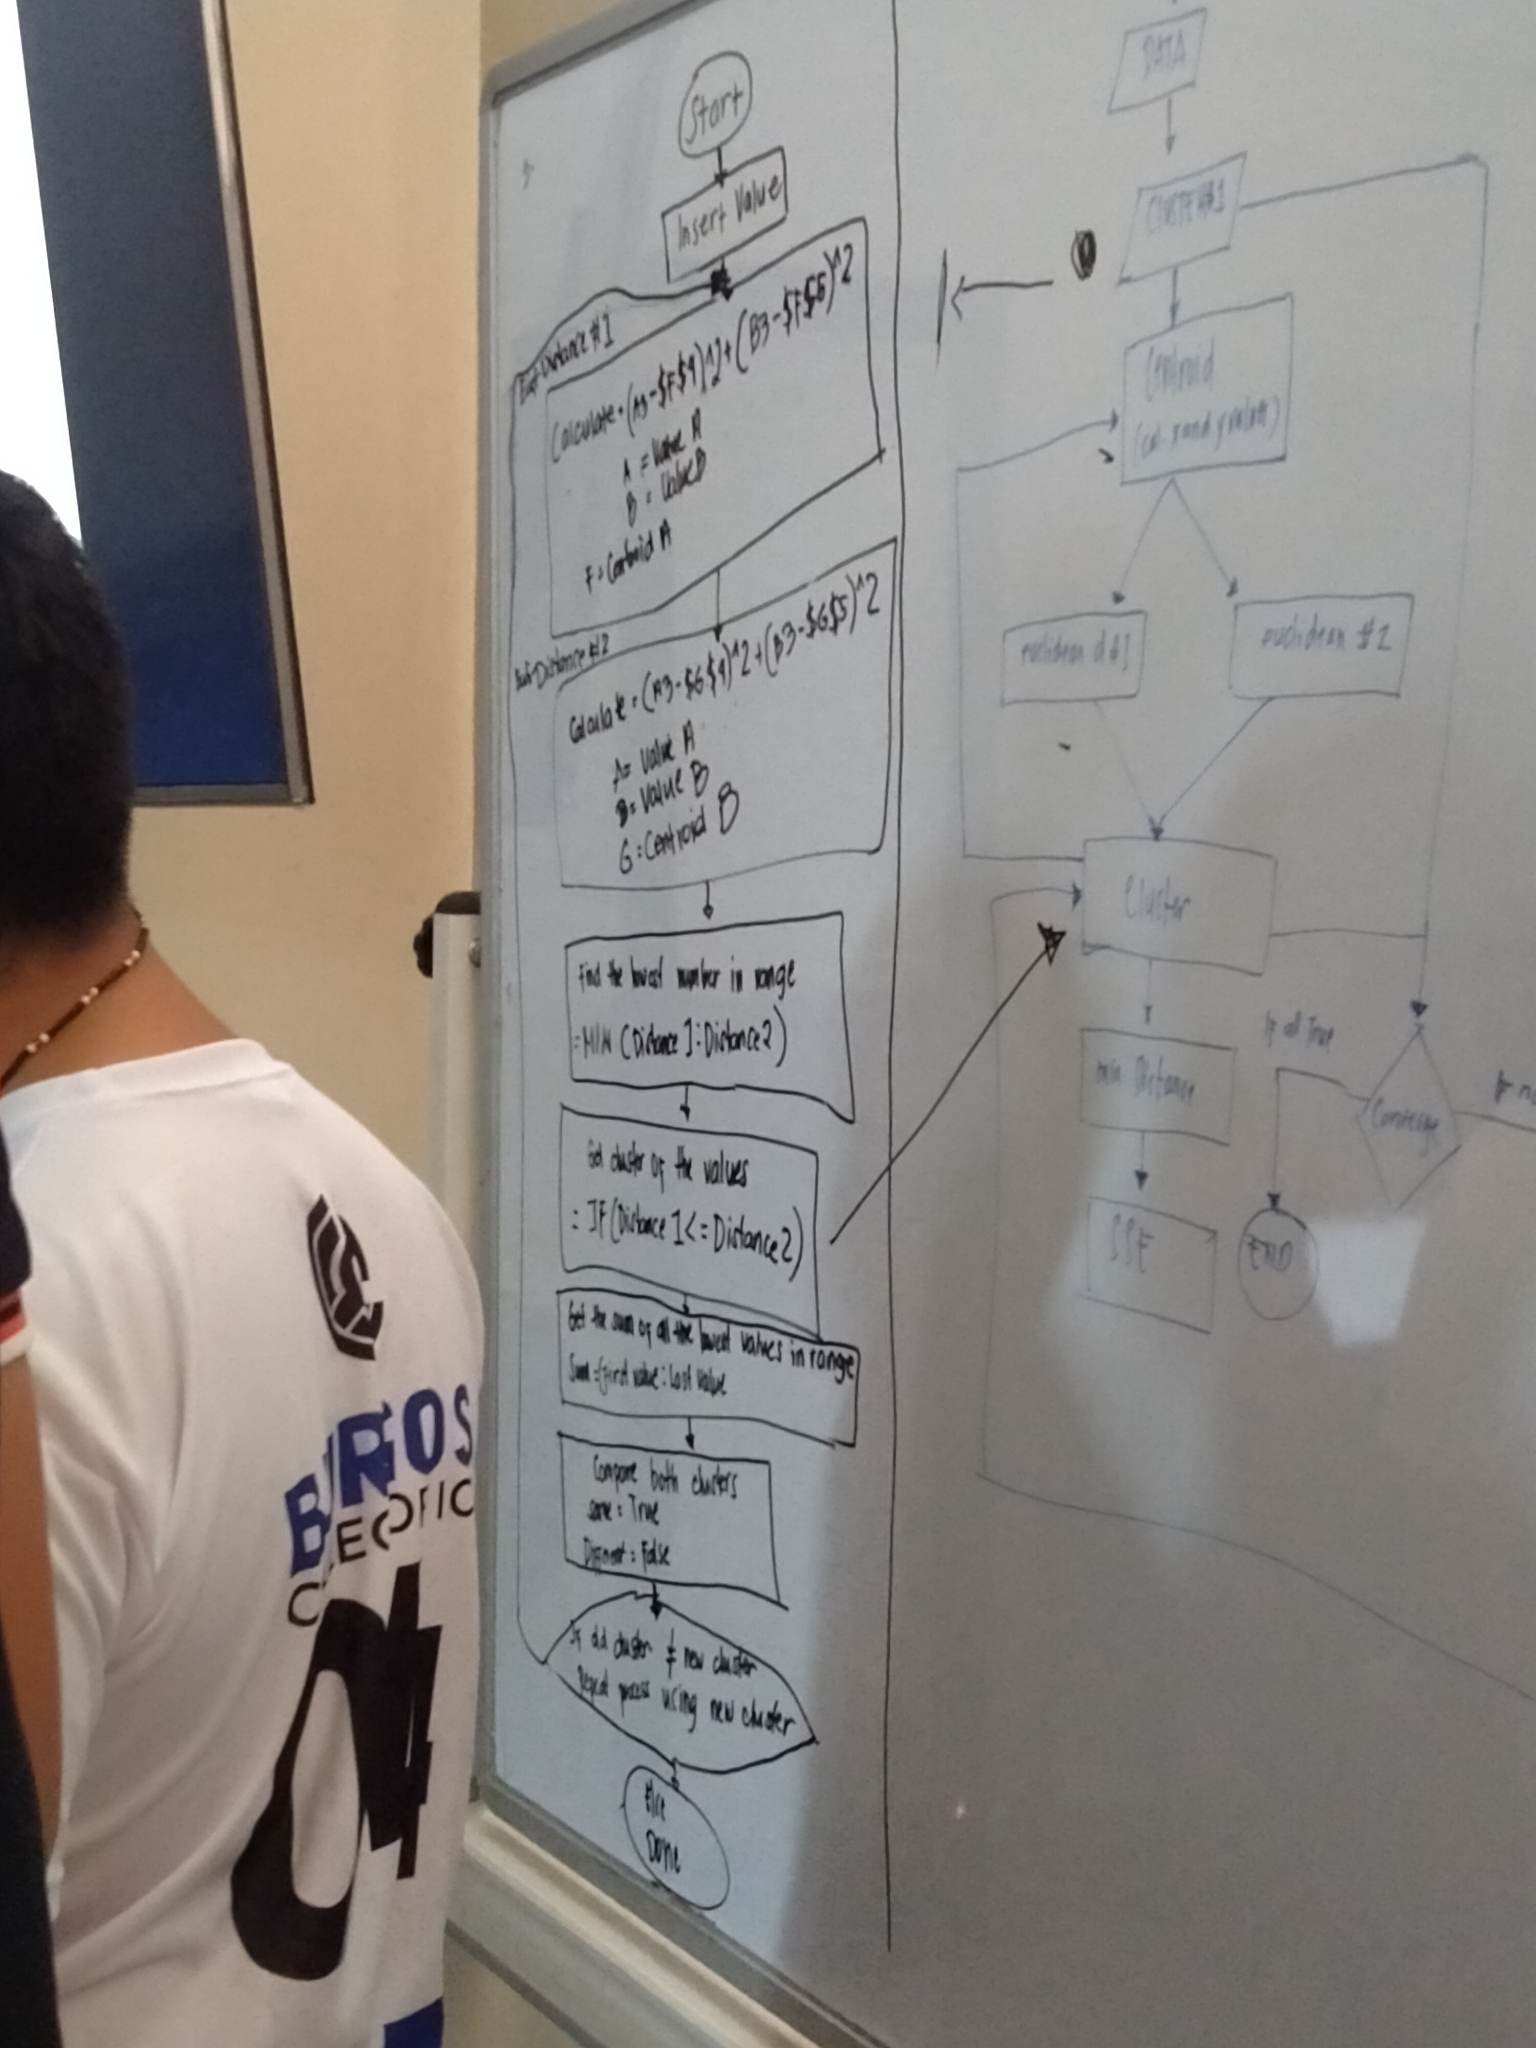 Start
Insert Value
Euc-Distance #1
Calculate = (A3-$F$4)^2+(B3-$F$5)^2
A = Value A
B = Value B
F = Centroid A
Euc-Distance #2
Calculate = (A3-$G$4)^2+(B3-$G$5)^2
A= Value A
B= Value B
G = Centroid B
Find the lowest number in range
=MIN (Distance 1:Distance2)
Get cluster of the values
= IF(Distance 1<=Distance2)
Get the sum of all the lowest values in range
Sum =(first value: Last Value
Compare both clusters
same = True
Different = False
If old cluster ≠ new cluster
Repeat process using new cluster
Else
Done
DATA
CLUSTER#1
Centroid
(cal. x and y values)
euclidean d #1
euclidean #2
Cluster
min Distance
SSE
If all True
Converge
END
BURGOS
04